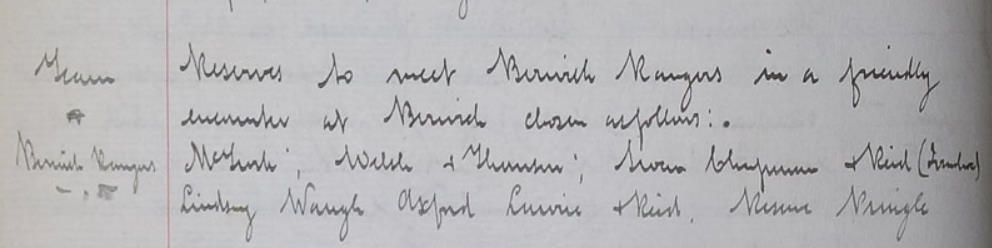 Team Reserves to meet Berwick Rangers in a friendly
encounter at Berwick chosen as follows:.
Berwick Rangers Welsh & Thomson; Chapman & Reid
Lindsay Waugh Oxford Lawrie & Reid. Reserve Pringle